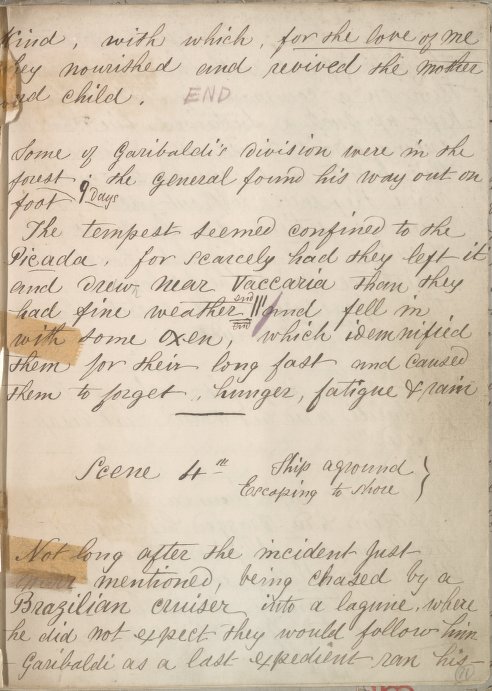 Kind, with which, for the love of me
they nourished and revived the mother
and child. END
Some of Garibaldi's division were in the
forest 9 Days; the General found his way out on
foot
The tempest seemed confined to the
Picada, for scarcely had they left it
and drew near Vaccaria than they
had fine weather end
and fell in
with some oxen, which idemnified
them for their long fast and caused
them to forget, hunger, fatigue & rain
Scene 4th Ship aground }
Escaping to shore
Not long after the incident just
mentioned, being chased by a
Brazilian cruiser into a lagune, where
he did not expect they would follow him
- Garibaldi as a last expedient ran his -